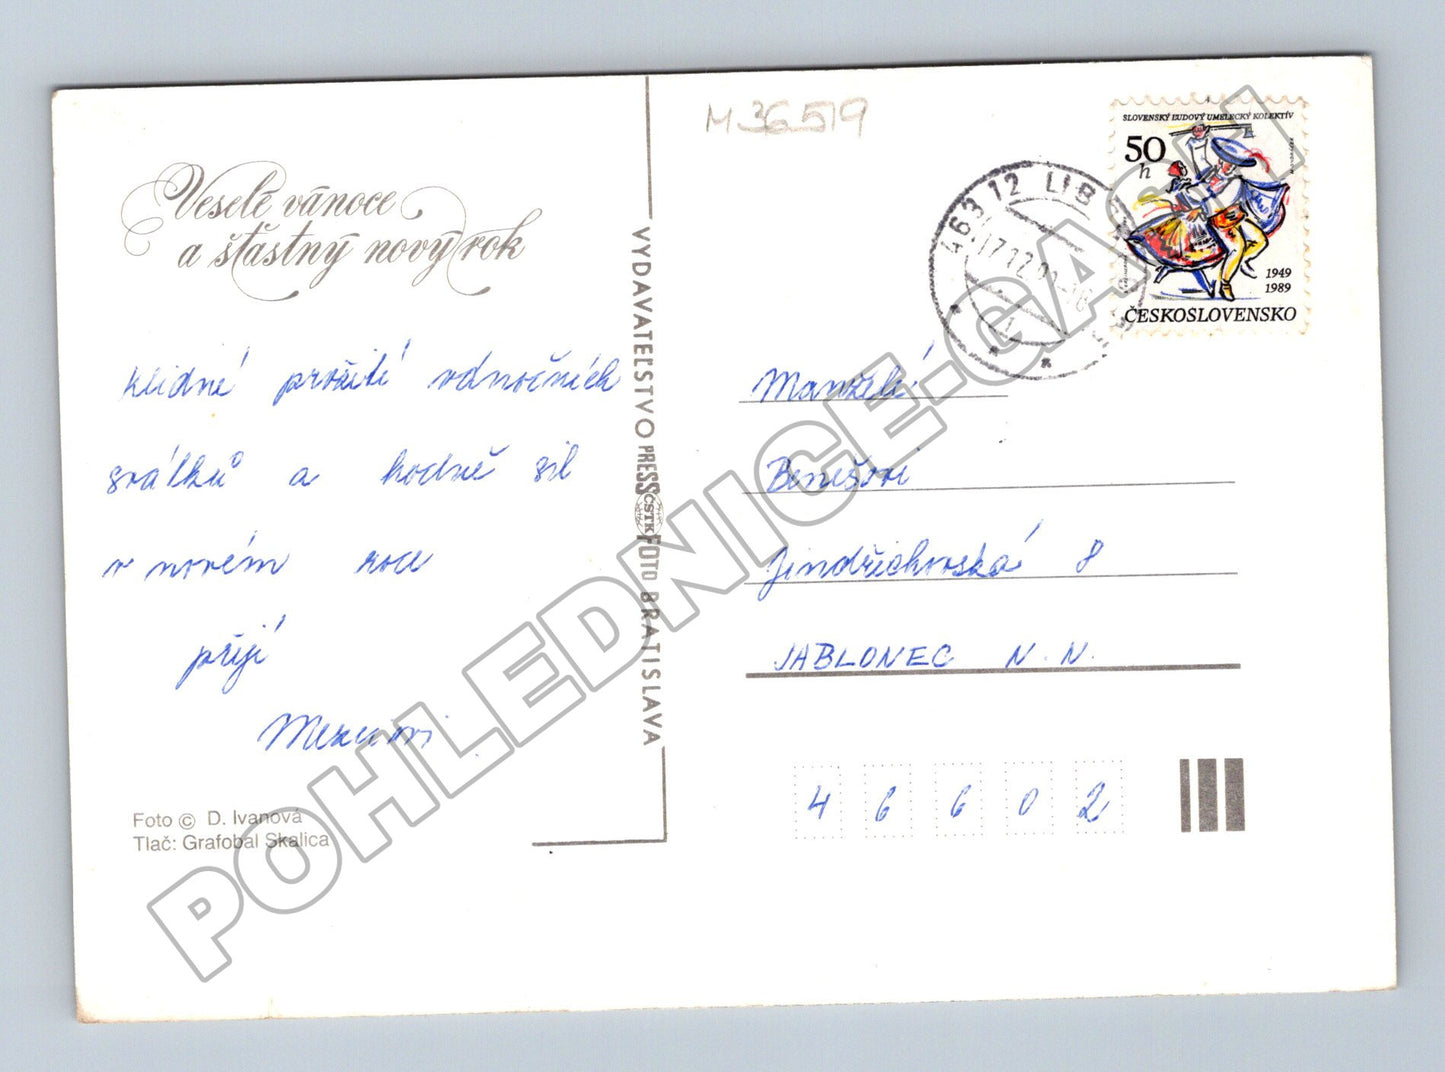 M 36519
Veselé vánoce
a šťastný nový rok
klidné prožití vánočních
svátků a hodně sil
v novém roce
přejí
Foto © D. Ivanová
Tlač: Grafobal Skalica
VYDAVATEĽSTVO PRESSFOTO BRATISLAVA
ČSTK
SLOVENSKÝ ĽUDOVÝ UMELECKÝ KOLEKTÍV
50
h
1949
1989
ČESKOSLOVENSKO
463 12 LIB
17.12.90
Manželé
Benešovi
Jindřichovská 8
JABLONEC N. N.
46602
POHLEDNICE-GASH